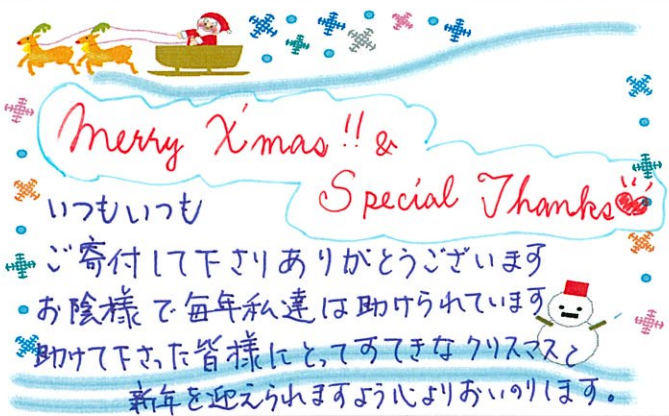 Merry X'mas!! &
Special Thanks
いつもいつも
ご寄付して下さりありがとうございます
お陰様で毎年私達は助けられています
助けて下さった皆様にとってすてきなクリスマスと
新年を迎えられますよう心よりおいのりします。